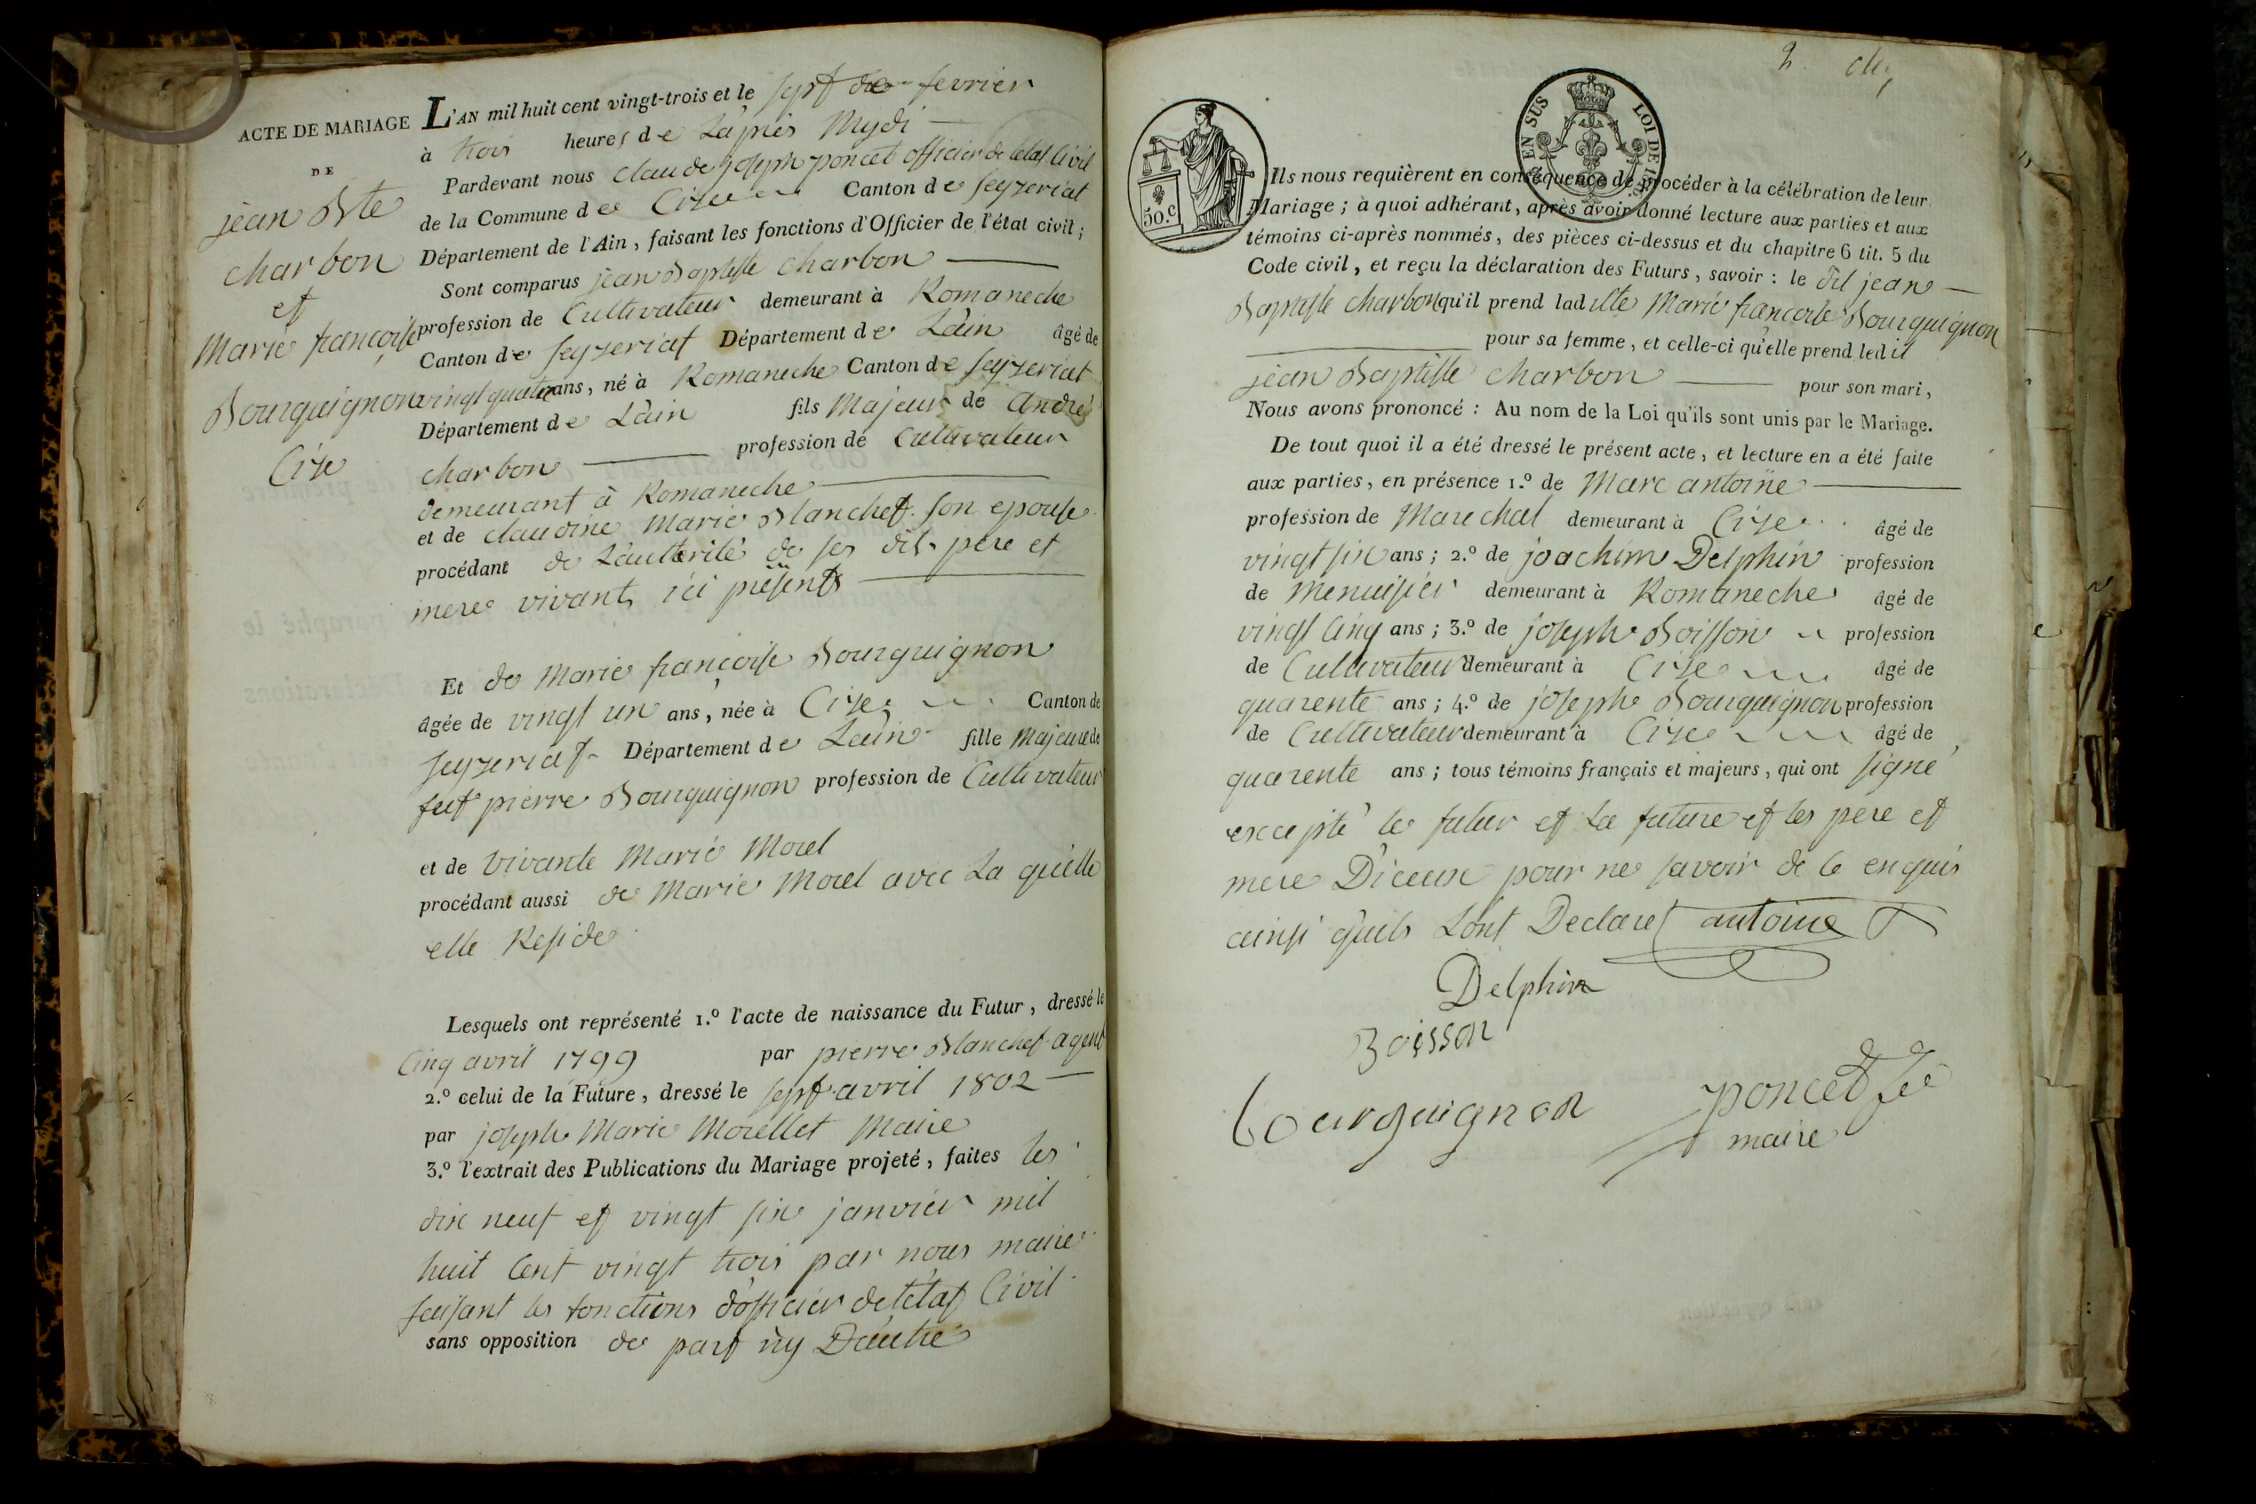 ACTE DE MARIAGE
DE
jean Bte
charbon
et
Marie françoise
Bourguignon
Cize
L'AN mil huit cent vingt-trois et le sept de fevrier
à trois heures de La'près Mydi
Pardevant nous claude joseph poncet officier de letat Civil
de la Commune de Cize Canton de seyzeriat
Département de l'Ain, faisant les fonctions d'Officier de l'état civil;
Sont comparus jean Baptiste charbon
profession de Cultivateur demeurant à Romaneche
Canton de seyzeriat Département de L'ain âgé de
vingt quatre ans, né à Romaneche Canton de seyzeriat
Département de L'ain fils Majeur de André
charbon profession de Cultivateur
demeurant à Romaneche
et de claudine Marie Blanchet son epouse
procédant de L'autterité de ses dits pere et
mere vivants ici présents
Et de Marie françoise Bourguignon
âgée de vingt un ans, née à Cize Canton de
seyzeriat Département de L'ain fille Majeure de
feut pierre Bourguignon profession de Cultivateur
et de vivante Marie Morel
procédant aussi de Marie Morel avec La quelle
elle Reside
Lesquels ont représenté 1.º l'acte de naissance du Futur, dressé le
Cinq avril 1799 par pierre Blanchet agent
2.º celui de la Future, dressé le sept avril 1802
par joseph Marie Morellet Maire
3.º l'extrait des Publications du Mariage projeté, faites les
dix neuf et vingt six janvier mil
huit Cent vingt trois par nous maire
faisant les fonctions d'officier de l'état Civil
sans opposition de part ny D'autre
2
50.C
EN SUS
LOI DE
Ils nous requièrent en conséquence de procéder à la célébration de leur
Mariage; à quoi adhérant, après avoir donné lecture aux parties et aux
témoins ci-après nommés, des pièces ci-dessus et du chapitre 6 tit. 5 du
Code civil, et reçu la déclaration des Futurs, savoir: le dit jean
Baptiste charbon qu'il prend ladite Marie francoise Bourguignon
pour sa femme, et celle-ci qu'elle prend ledit
jean Baptiste charbon pour son mari,
Nous avons prononcé: Au nom de la Loi qu'ils sont unis par le Mariage.
De tout quoi il a été dressé le présent acte, et lecture en a été faite
aux parties, en présence 1.º de Marc antoine
profession de Marechal demeurant à Cize âgé de
vingt six ans; 2.º de joachim Delphin profession
de Menuisier demeurant à Romaneche âgé de
vingt Cinq ans; 3.º de joseph Boisson profession
de Cultivateur demeurant à Cize âgé de
quarente ans; 4.º de joseph Bourguignon profession
de Cultivateur demeurant à Cize âgé de
quarente ans; tous témoins français et majeurs, qui ont signé
excepté le futur et La future et les pere et
mere D'iceux pour ne savoir de ce enquis
ainsi quils Lont Declaré antoine
Delphin
Boisson
bourguignon
poncet
maire